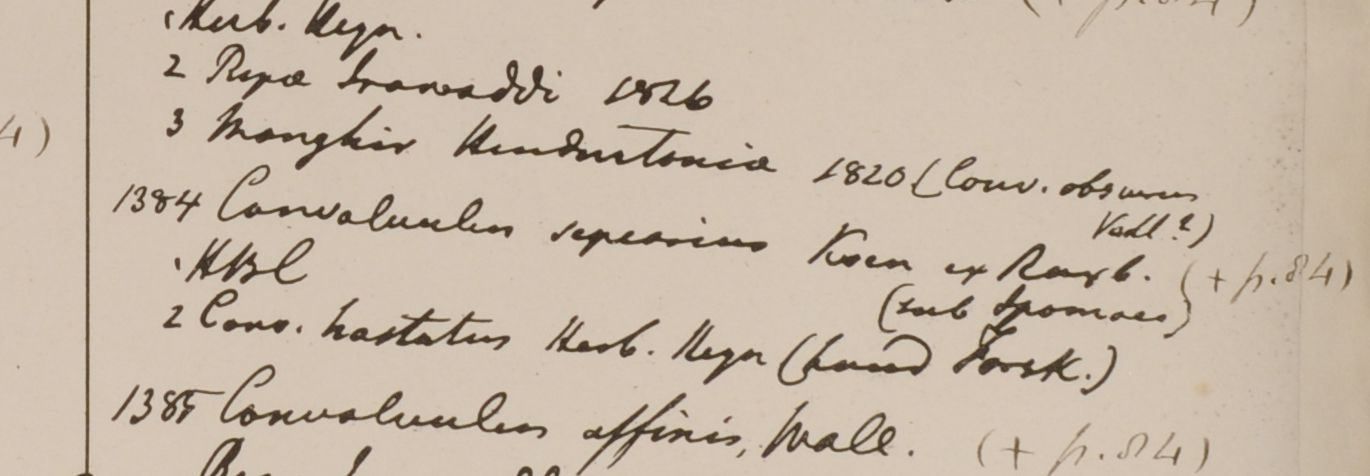 (+ p.84)
1 Herb. Heyn.
2 Ripa Irawaddi 1826
4)
3 Monghir Hindustania 1820 (Conv. obscurus
Vahl?)
1384 Convolvulus sepiarius Koen ex Roxb. (+ p.84)
1 HBC
(sub Ipomaea)
2 Conv. hastatus Herb. Heyn (haud Forsk.)
1385 Convolvulus affinis, Wall. (+ p.84)